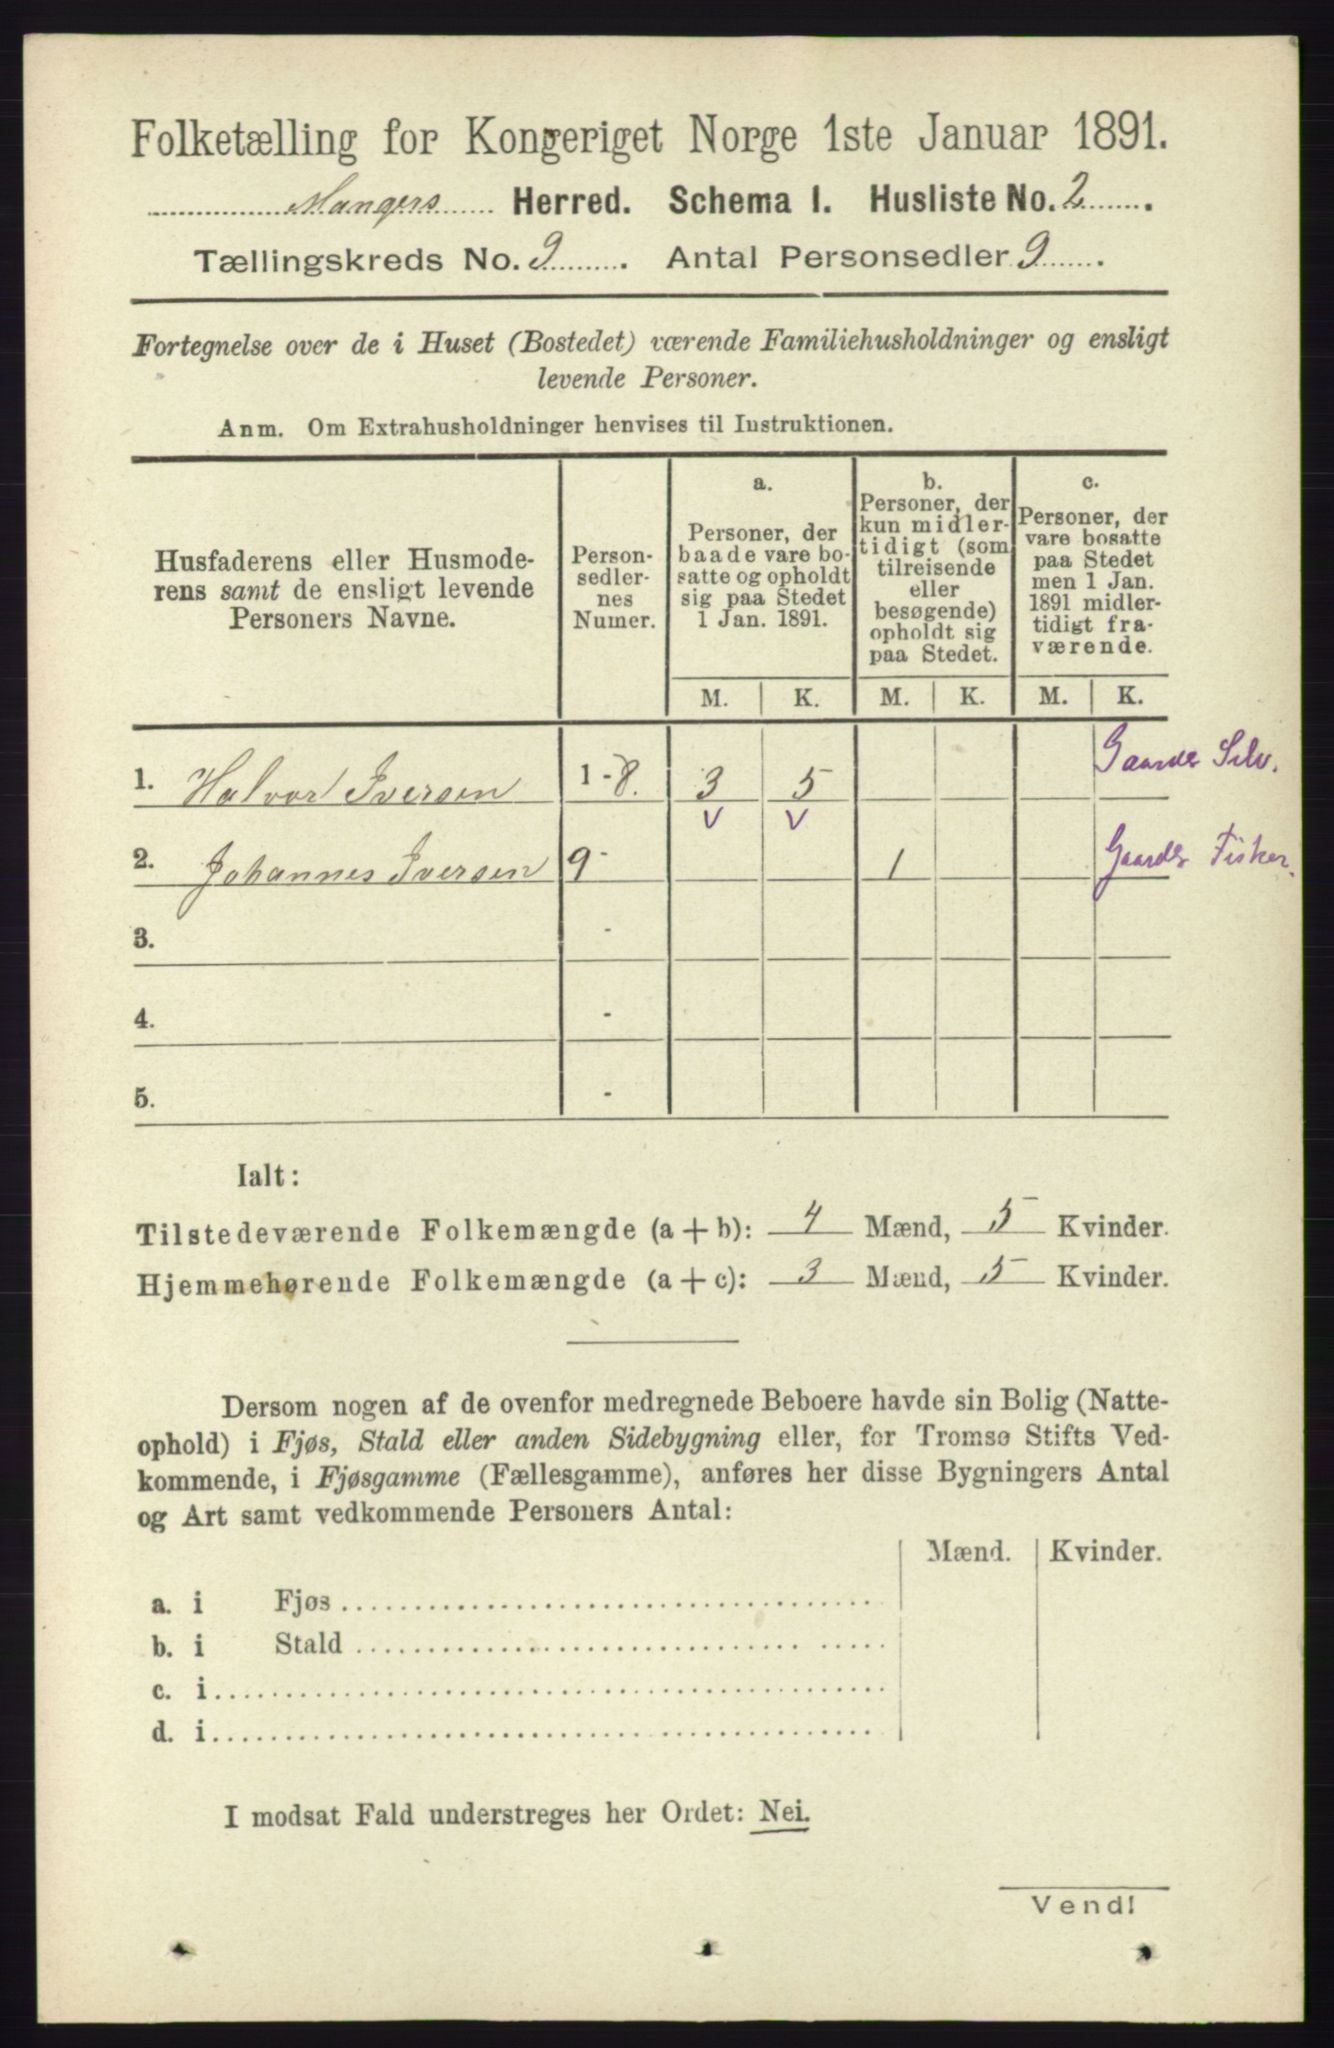 Folketælling for Kongeriget Norge 1ste Januar 1891.
Mangers Herred. Schema I. Husliste No. 2.
Tællingskreds No. 9. Antal Personsedler 9.
Fortegnelse over de i Huset (Bostedet) værende Familiehusholdninger og ensligt
levende Personer.
Anm. Om Extrahusholdninger henvises til Instruktionen.
Husfaderens eller Husmode-
rens samt de ensligt levende
Personers Navne.
Person-
sedler-
nes
Numer.
a.
Personer, der
baade vare bo-
satte og opholdt
sig paa Stedet
1 Jan. 1891.
b.
Personer, der
kun midler-
tidigt (som
tilreisende
eller
besøgende)
opholdt sig
paa Stedet.
c.
Personer, der
vare bosatte
paa Stedet
men 1 Jan.
1891 midler-
tidigt fra-
værende.
M. K. M. K. M. K.
1. Halvor Iversen 1 - 8. 3 5 Gaardb Selv.
v v
2. Johannes Iversen 9 - 1 Gaardb Fisker.
3. -
4. -
5. -
Ialt:
Tilstedeværende Folkemængde (a + b): 4 Mænd, 5 Kvinder.
Hjemmehørende Folkemængde (a + c): 3 Mænd, 5 Kvinder.
Dersom nogen af de ovenfor medregnede Beboere havde sin Bolig (Natte-
ophold) i Fjøs, Stald eller anden Sidebygning eller, for Tromsø Stifts Ved-
kommende, i Fjøsgamme (Fællesgamme), anføres her disse Bygningers Antal
og Art samt vedkommende Personers Antal:
Mænd. Kvinder.
a. i Fjøs
b. i Stald
c. i
d. i
I modsat Fald understreges her Ordet: Nei.
Vend!